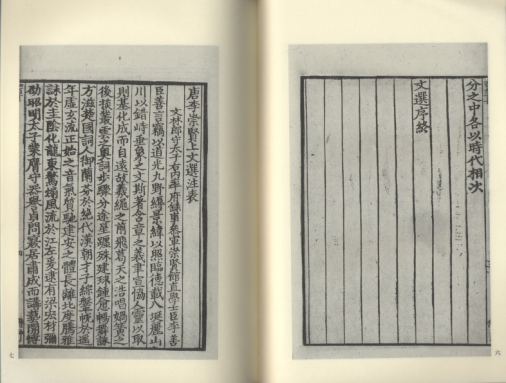 分之中各以時代相次
文選序終
六
唐李崇賢上文選注表
文林郎守太子右內率府錄事參軍崇賢館直學士臣李善
臣善言竊以道光九野縟景緯以照臨德載八埏麗山
川以錯峙垂象之文斯著含章之義聿宣協人靈以取
則基化成而自遠故羲繩之前飛葛天之浩唱媧簧之
後掞叢雲之奧詞步驟分途星躔殊建球鍾愈暢舞詠
方滋楚國詞人御蘭芬於絕代漢朝才子綜鞶帨於遙
年虛玄流正始之音氣質馳建安之體長離北度騰雅
詠於圭陰化龍東騖煽風流於江左爰逮有梁宏材彌
劭昭明太子業膺守器譽貞問寢居肅成而講藝開博
七